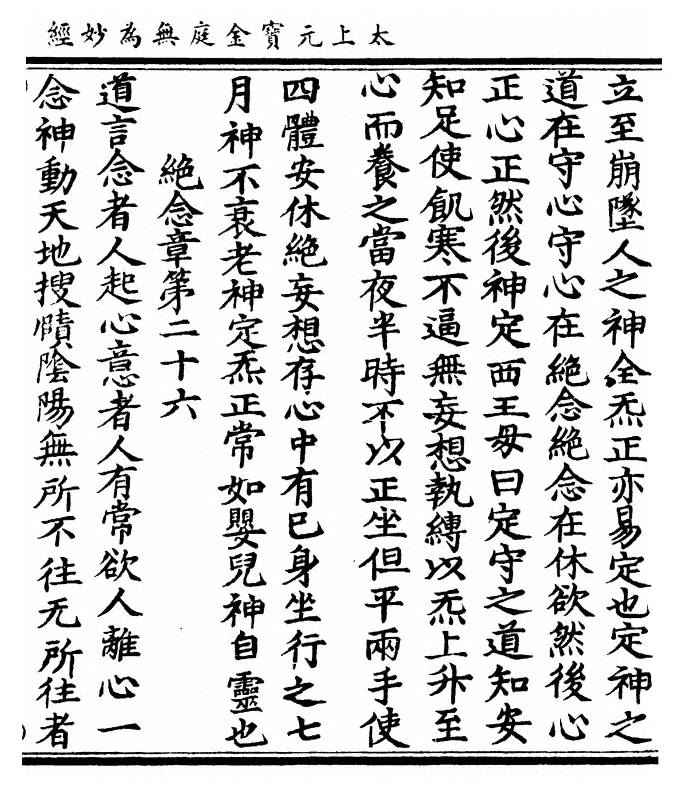 太上元寶金庭無為妙經
立至崩墜人之神全炁正亦易定也定神之
道在守心守心在絕念絕念在休欲然後心
正心正然後神定西王母曰定守之道知安
知足使飢寒不逼無妄想執縛以炁上升至
心而養之當夜半時不以正坐但平兩手使
四體安休絕妄想存心中有已身坐行之七
月神不衰老神定炁正常如嬰兒神自靈也
絕念章第二十六
道言念者人起心意者人有常欲人離心一
念神動天地搜賾陰陽無所不往无所往者